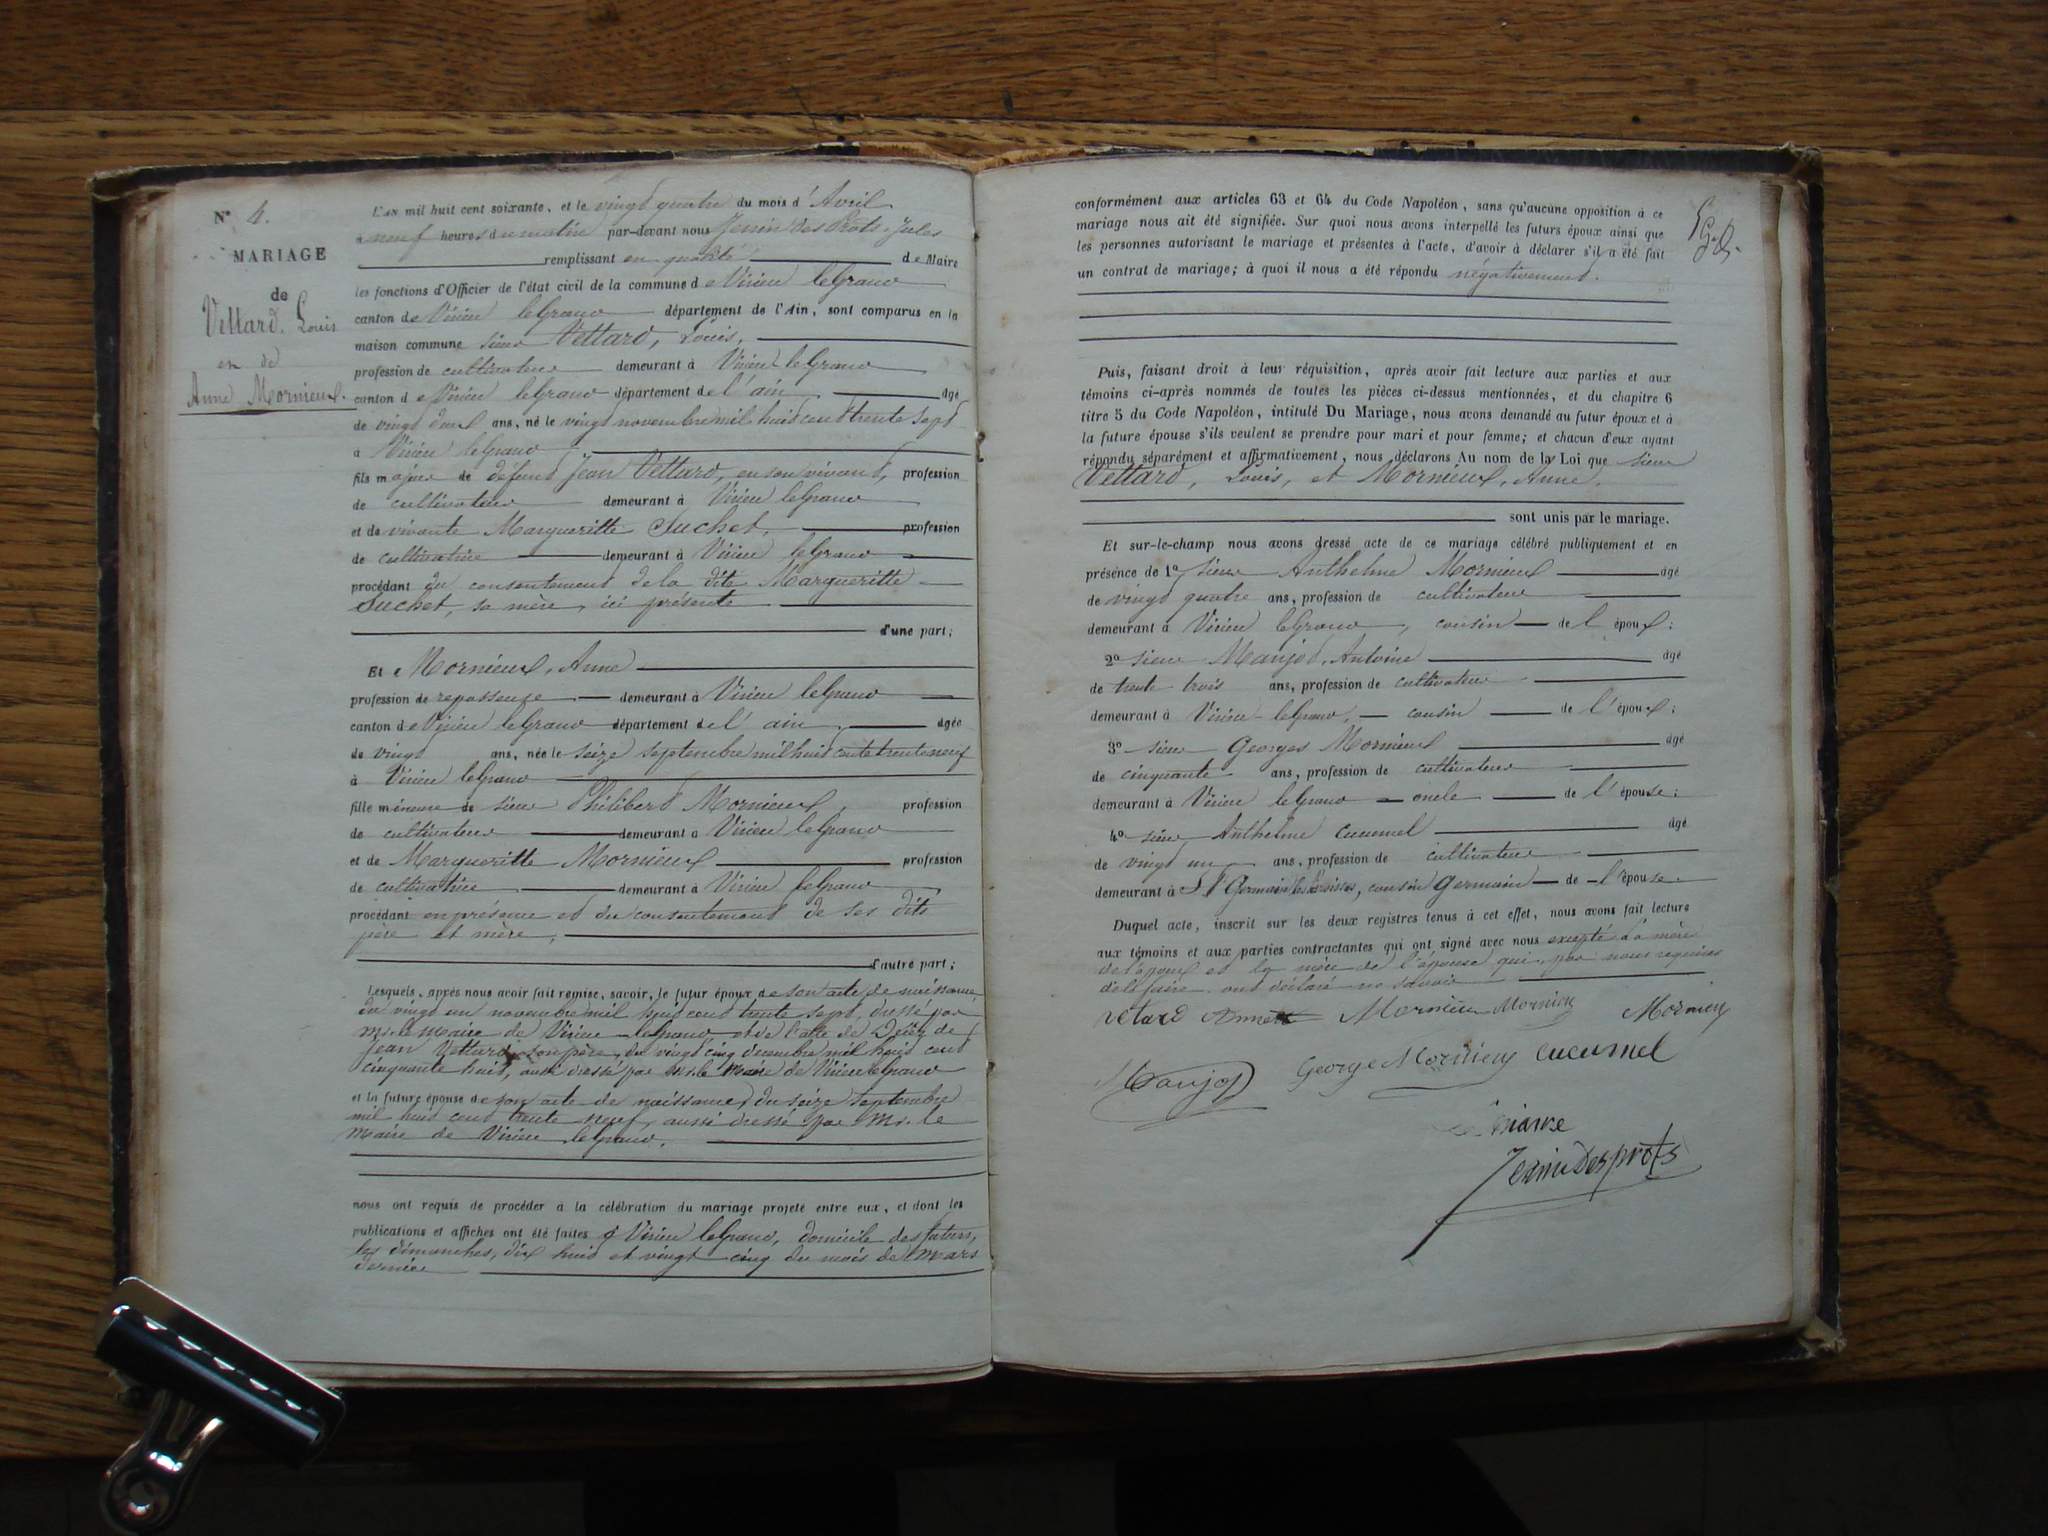 N° 4.
MARIAGE
de
Vettard, Louis
et de
Anne Mornieux.
L'AN mil huit cent soixante, et le vingt quatre du mois d'Avril
à neuf heures du matin par-devant nous Jenin des Prots, Jules
remplissant en qualité de Maire
les fonctions d'Officier de l'état civil de la commune de Virieu leGrand
canton de Virieu leGrand département de l'Ain, sont comparus en la
maison commune sieur Vettard, Louis,
profession de cultivateur demeurant à Virieu leGrand
canton de Virieu leGrand département de l'ain âgé
de vingt deux ans, né le vingt novembre mil huit cent trente sept
à Virieu leGrand
fils majeur de défunt Jean Vettard, en son vivant, profession
de cultivateur demeurant à Virieu leGrand
et de vivante Margueritte Suchet, profession
de cultivatrice demeurant à Virieu leGrand
procédant du consentement de la dite Margueritte
Suchet, sa mère, ici présente
d'une part;
Et Mornieux, Anne
profession de repasseuze demeurant à Virieu leGrand
canton de Virieu leGrand département de l'ain, âgée
de vingt ans, née le seize septembre mil huit cente trente neuf
à Virieu leGrand
fille mineure de sieur Philibert Mornieux, profession
de cultivateur demeurant à Virieu leGrand
et de Margueritte Mornieux profession
de cultivatrice demeurant à Virieu leGrand
procédant en présence et du consentement de ses dits
père et mère,
d'autre part;
Lesquels, après nous avoir fait remise, savoir, le futur époux de son acte de naissance
du vingt un novembre mil huit cent trente sept, dressé par
Mr. le Maire de Virieu leGrand, et de l'acte de Décéz de
Jean Vettard, son père, du vingt cinq décembre mil huit cent
cinquante huit, aussi dressé par Mr. le Maire de Virieu leGrand
et la future épouse de son acte de naissance, du seize septembre
mil huit cent trente neuf, aussi dressé par Mr. le
Maire de Virieu leGrand,
nous ont requis de procéder à la célébration du mariage projeté entre eux, et dont les
publications et affiches ont été faites à Virieu leGrand, domicile des futurs,
les dimanches, dix huit et vingt cinq du mois de Mars
dernier
conformément aux articles 63 et 64 du Code Napoléon, sans qu'aucune opposition à ce
mariage nous ait été signifiée. Sur quoi nous avons interpellé les futurs époux ainsi que
les personnes autorisant le mariage et présentes à l'acte, d'avoir à déclarer s'il a été fait
un contrat de mariage; à quoi il nous a été répondu négativement.
Puis, faisant droit à leur réquisition, après avoir fait lecture aux parties et aux
témoins ci-après nommés de toutes les pièces ci-dessus mentionnées, et du chapitre 6
titre 5 du Code Napoléon, intitulé Du Mariage, nous avons demandé au futur époux et à
la future épouse s'ils veulent se prendre pour mari et pour femme; et chacun d'eux ayant
répondu séparément et affirmativement, nous déclarons Au nom de la Loi que sieur
Vettard, Louis, et Mornieux, Anne,
sont unis par le mariage.
Et sur-le-champ nous avons dressé acte de ce mariage célébré publiquement et en
présence de 1° sieur Anthelme Mornieux âgé
de vingt quatre ans, profession de cultivateur
demeurant à Virieu leGrand, cousin de l'époux;
2° sieur Manjot, Antoine âgé
de trente trois ans, profession de cultivateur
demeurant à Virieu leGrand, cousin de l'époux;
3° sieur Georges Mornieux âgé
de cinquante ans, profession de cultivateur
demeurant à Virieu leGrand oncle de l'épouse;
4° sieur Anthelme Cucumel âgé
de vingt un ans, profession de cultivateur
demeurant à St Germain les Paroisses, cousin germain de l'épouse.
Duquel acte, inscrit sur les deux registres tenus à cet effet, nous avons fait lecture
aux témoins et aux parties contractantes qui ont signé avec nous excepté la mère
de l'époux et la mère de l'épouse qui, par nous requises
de le faire ont déclaré ne savoir
Vetard Anne Mornieu Mornieux Mornieux
Manjot George Mornieux Cucumel
Le Maire
Jenin Desprots